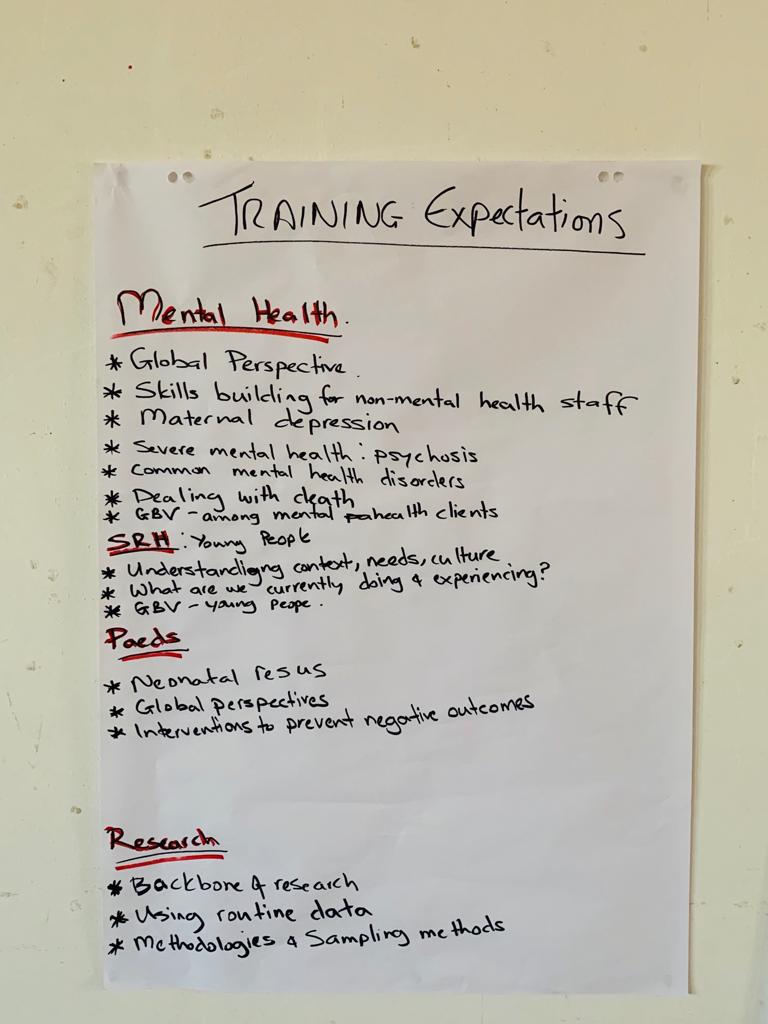 TRAINING Expectations
Mental Health.
* Global Perspective.
* Skills building for non-mental health staff
* Maternal depression
* Severe mental health : psychosis
* Common mental health disorders
* Dealing with death
* GBV - among mental health clients
SRH : Young People
* Understandigng context, needs, culture
* What are we currently doing & experiencing?
* GBV - young peope.
Paeds
* Neonatal resus
* Global perspectives
* Interventions to prevent negative outcomes
Research
* Backbone of research
* Using routine data
* Methodologies & Sampling methods